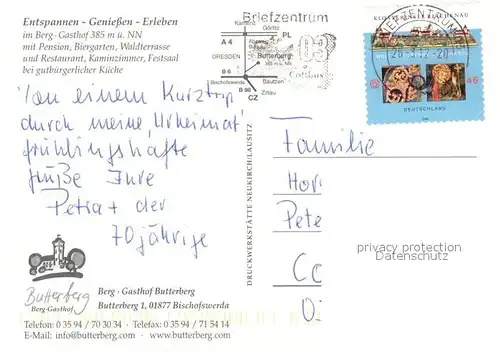 Entspannen - Genießen - Erleben
im Berg - Gasthof 385 m ü. NN
mit Pension, Biergarten, Waldterrasse
und Restaurant, Kaminzimmer, Festsaal
bei gutbürgerlicher Küche
Briefzentrum
03
Cottbus
Kamenz
Görlitz
A 4
PL
DRESDEN
Butterberg
385 m ü. NN
B 6
Bautzen
Bischofswerda
B 98
Zittau
CZ
BRIEFZENTRUM
KLOSTERINSEL REICHENAU
DEUTSCHLAND
45
Von einem Kurztrip
durch meine „Urheimat"
frühlingshafte
Grüße Eure
Petra + der
70jährige
Familie
Hor
Pete
Co
privacy protection
Datenschutz
DRUCKWERKSTÄTTE NEUKIRCH/LAUSITZ
Butterberg
Berg-Gasthof
Berg - Gasthof Butterberg
Butterberg 1, 01877 Bischofswerda
Telefon: 0 35 94 / 70 30 34 · Telefax: 0 35 94 / 71 54 14
E-Mail: info@butterberg.com · www.butterberg.com